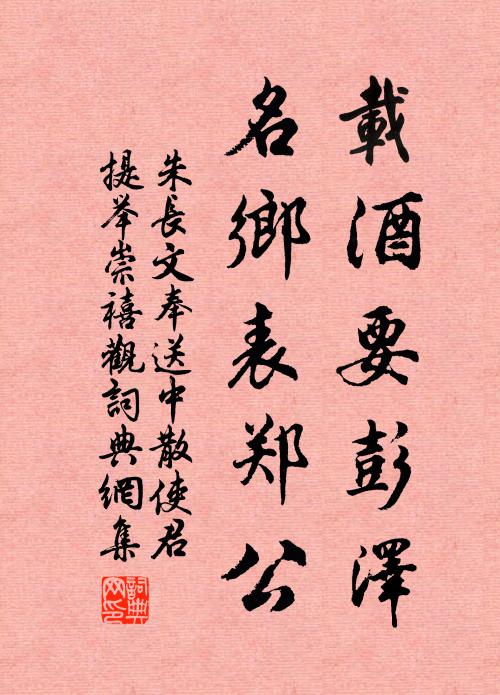 載酒要彭澤
名鄉表郑公
朱長文奉送中散使君
提举崇禧觀詞典網集
詞典
网印